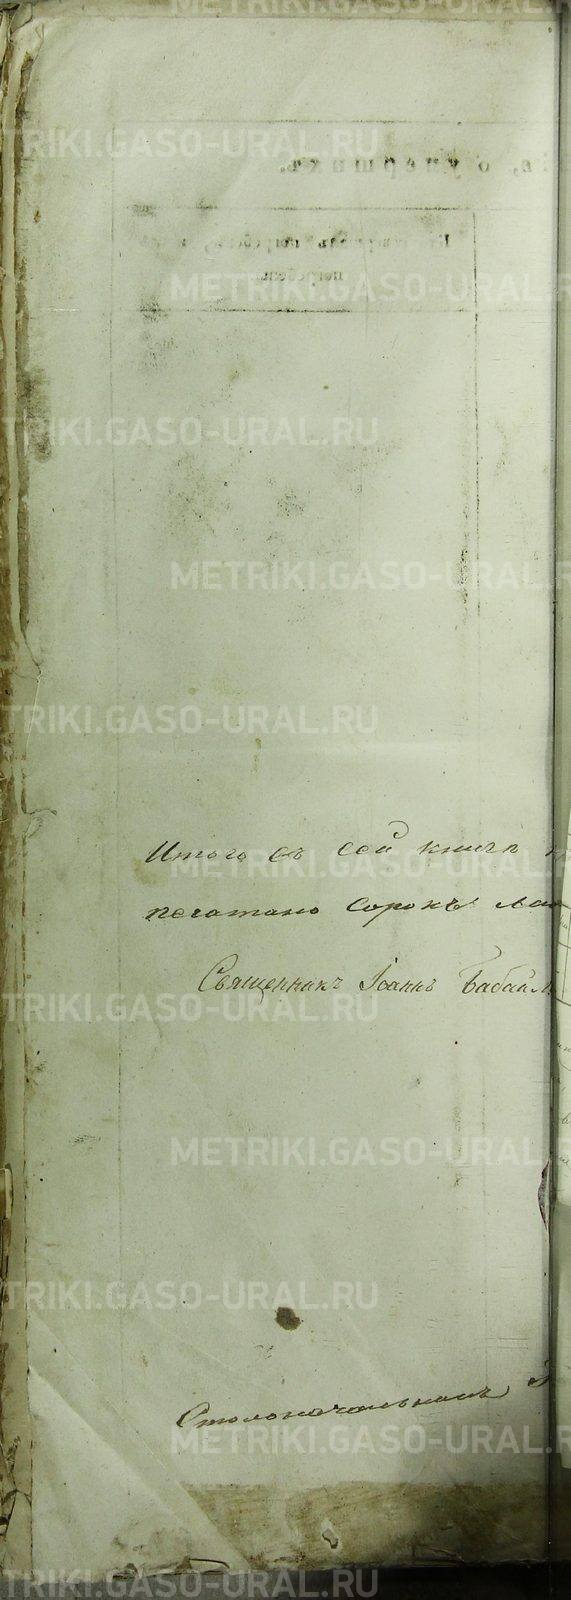 METRIKI.GASO-URAL.RU
TRIKI.GASO-URAL.RU
о умершихъ.
погребенъ
METRIKI.GASO-URAL.RU
TRIKI.GASO-URAL.RU
METRIKI.GASO-URAL.R
TRIKI.GASO-URAL.RU
Итого въ сей книгѣ
METRIKI.GASO-URAL.R
печатано сорокъ
Священникъ Іоаннъ Бабай
TRIKI.GASO-URAL.RU
METRIKI.GASO-URAL.R
TRIKI.GASO-URAL.RU
Столоначальникъ
METRIKI.GASO-URAL.R
TRIKI.GASO-URAL.RU